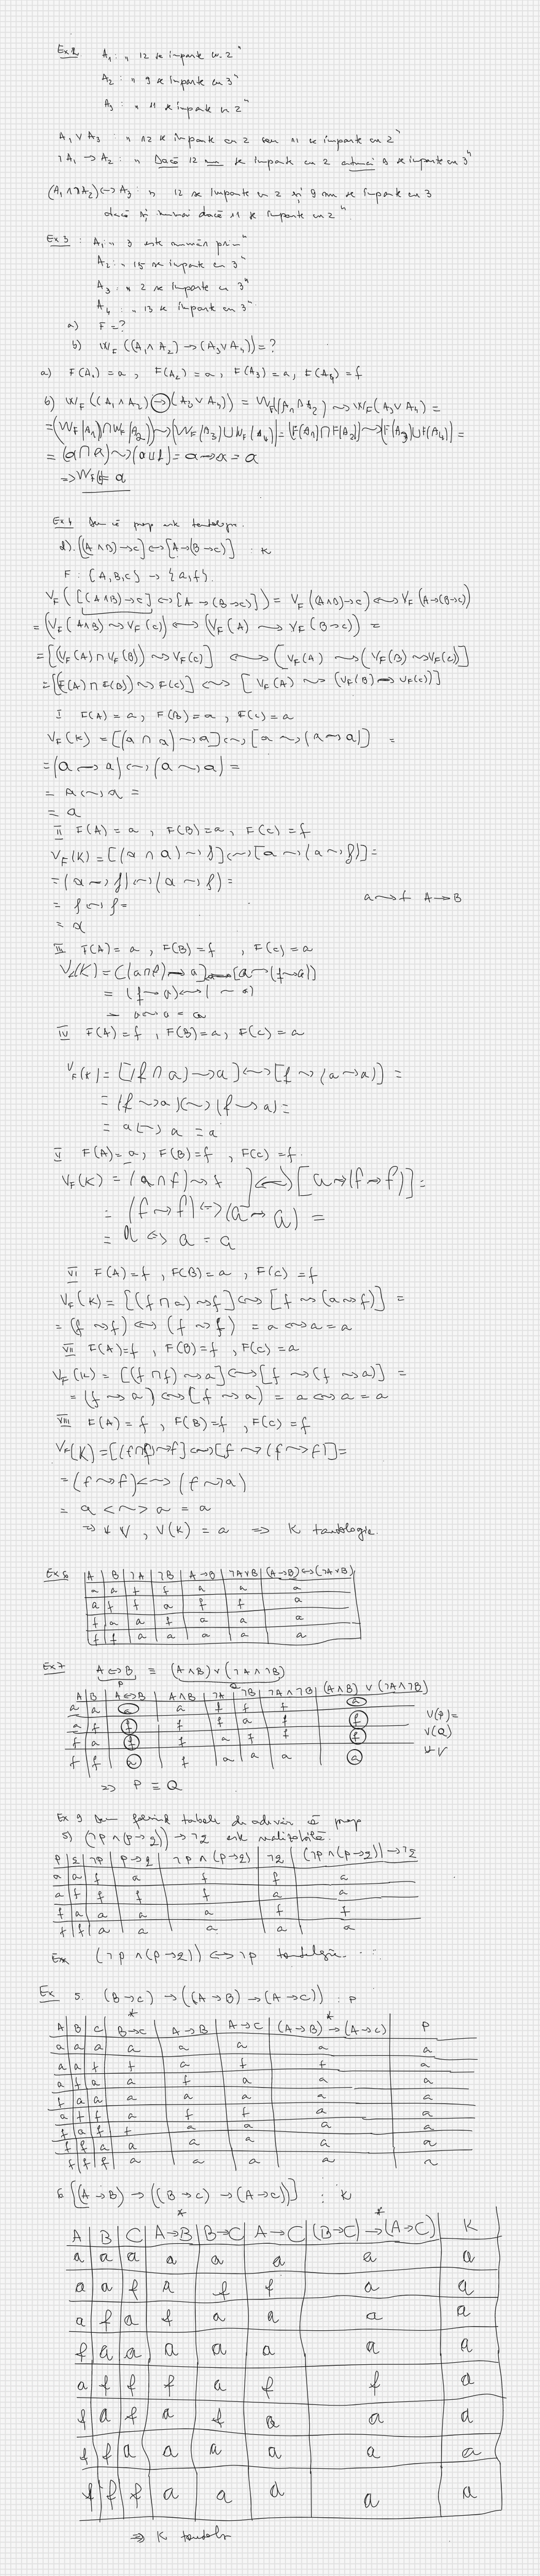 Ex 2. A₁ : „ 12 se împarte cu 2 "
A₂ : „ 9 se împarte cu 3"
A₃ : „ 11 se împarte cu 2"
A₁ ∨ A₃ : „ 12 se împarte cu 2 sau 11 se împarte cu 2"
¬A₁ → A₂ : „ Dacă 12 nu se împarte cu 2 atunci 9 se împarte cu 3"
(A₁ ∧ ¬A₂) ↔ A₃ : „ 12 se împarte cu 2 și 9 nu se împarte cu 3
dacă și numai dacă 11 se împarte cu 2".
Ex 3 : A₁ : „ 3 este număr prim"
A₂ : „ 15 se împarte cu 3"
A₃ : „ 2 se împarte cu 3"
A₄ „ 13 se împarte cu 3"
a) F = ?
b) W_F ((A₁ ∧ A₂) → (A₃ ∨ A₄)) = ?
a) F(A₁) = a , F(A₂) = a, F(A₃) = a, F(A₄) = f
b) W_F ((A₁ ∧ A₂) → (A₃ ∨ A₄)) = W_F(A₁ ∩ A₂) ⇝ W_F(A₃ ∪ A₄) =
= (W_F(A₁) ∩ W_F(A₂)) ⇝ (W_F(A₃) ∪ W_F(A₄)) = (F(A₁) ∩ F(A₂)) ⇝ (F(A₃) ∪ F(A₄)) =
= (a ∩ a) ⇝ (a ∪ f) = a ⇝ a = a
⇒ W_F = a
Ex 4 Dem că prop este tautologie.
d). [(A ∧ B) → C] ↔ [A → (B → C)] : K
F : {A, B, C} → {a, f}.
V_F ([(A ∧ B) → C] ↔ [A → (B → C)]) = V_F ((A ∧ B) → C) ↭ V_F (A → (B → C))
= (V_F (A ∧ B) ⇝ V_F (C)) ↭ (V_F (A) ⇝ V_F (B → C)) =
= [(V_F (A) ∩ V_F (B)) ⇝ V_F (C)] ↭ [V_F (A) ⇝ (V_F (B) ⇝ V_F (C))]
= [(F(A) ∩ F(B)) ⇝ F(C)] ↭ [V_F (A) ⇝ (V_F (B) ⇝ V_F (C))]
I F(A) = a, F(B) = a , F(C) = a
V_F (K) = [(a ∩ a) ⇝ a] ↭ [a ⇝ (a ⇝ a)] =
= (a ⇝ a) ↭ (a ⇝ a) =
= a ↭ a =
= a
II F(A) = a , F(B) = a, F(C) = f
V_F (K) = [(a ∩ a) ⇝ f] ↭ [a ⇝ (a ⇝ f)] =
= (a ⇝ f) ↭ (a ⇝ f) =
= f ↭ f = a ⇝ f A → B
= a
III F(A) = a , F(B) = f , F(C) = a
V_F(K) = [(a ∩ f) ⇝ a] ↭ [a ⇝ (f ⇝ a)]
= (f ⇝ a) ↭ ( ⇝ a)
= a ↭ a = a
IV F(A) = f , F(B) = a, F(C) = a
V_F (K) = [(f ∩ a) ⇝ a] ↭ [f ⇝ (a ⇝ a)] =
= (f ⇝ a) ↭ (f ⇝ a) =
= a ↭ a = a
V F(A) = a, F(B) = f , F(C) = f
V_F (K) = (a ∩ f) ⇝ f ] ↭ [a ⇝ (f ⇝ f)] =
= (f ⇝ f) ↭ (a ⇝ a) =
= a ↭ a = a
VI F(A) = f , F(B) = a , F(C) = f
V_F (K) = [(f ∩ a) ⇝ f] ↭ [f ⇝ (a ⇝ f)] =
= (f ⇝ f) ↭ (f ⇝ f) = a ↭ a = a
VII F(A) = f , F(B) = f , F(C) = a
V_F (K) = [(f ∩ f) ⇝ a] ↭ [f ⇝ (f ⇝ a)] =
= (f ⇝ a) ↭ [f ⇝ a) = a ↭ a = a
VIII F(A) = f , F(B) = f , F(C) = f
V_F (K) = [(f ∩ f) ⇝ f] ↭ [f ⇝ (f ⇝ f)] =
= (f ⇝ f) ↭ (f ⇝ a)
= a ↭ a = a
⇒ ∀ V , V(K) = a ⇒ K tautologie.
Ex 6 A B ¬A ¬B A → B ¬A ∨ B (A → B) ↔ (¬A ∨ B)
a a f f a a a
a f f a f f a
f a a f a a a
f f a a a a a
Ex 7 A ↔ B ≡ (A ∧ B) ∨ (¬A ∧ ¬B)
P Q
A B A ↔ B A ∧ B ¬A ¬B ¬A ∧ ¬B (A ∧ B) ∨ (¬A ∧ ¬B)
a a a a f f f a
a f f f f a f f V(P) =
f a f f a f f f V(Q)
f f a f a a a a ∀ V
⇒ P ≡ Q
Ex 9 Dem folosind tabele de adevăr că prop
5) (¬p ∧ (p → q)) → ¬q este realizabilă.
p q ¬p p → q ¬p ∧ (p → q) ¬q (¬p ∧ (p → q)) → ¬q
a a f a f f a
a f f f f a a
f a a a a f f
f f a a a a a
Ex (¬p ∧ (p → q)) ↔ ¬p tautologie.
Ex 5. (B → C) → ((A → B) → (A → C)) : P
A B C B → C A → B A → C (A → B) → (A → C) P
a a a a a a a a
a a f f a f f a
a f a a f a a a
f a a a a a a a
a f f a f f a a
f a f f a a a a
f f a a a a a a
f f f a a a a a
6 [(A → B) → ((B → C) → (A → C))] : K
A B C A → B B → C A → C (B → C) → (A → C) K
a a a a a a a a
a a f a f f a a
a f a f a a a a
f a a a a a a a
a f f f a f f a
f a f a f a a a
f f a a a a a a
f f f a a a a a
⇒ K tautolo